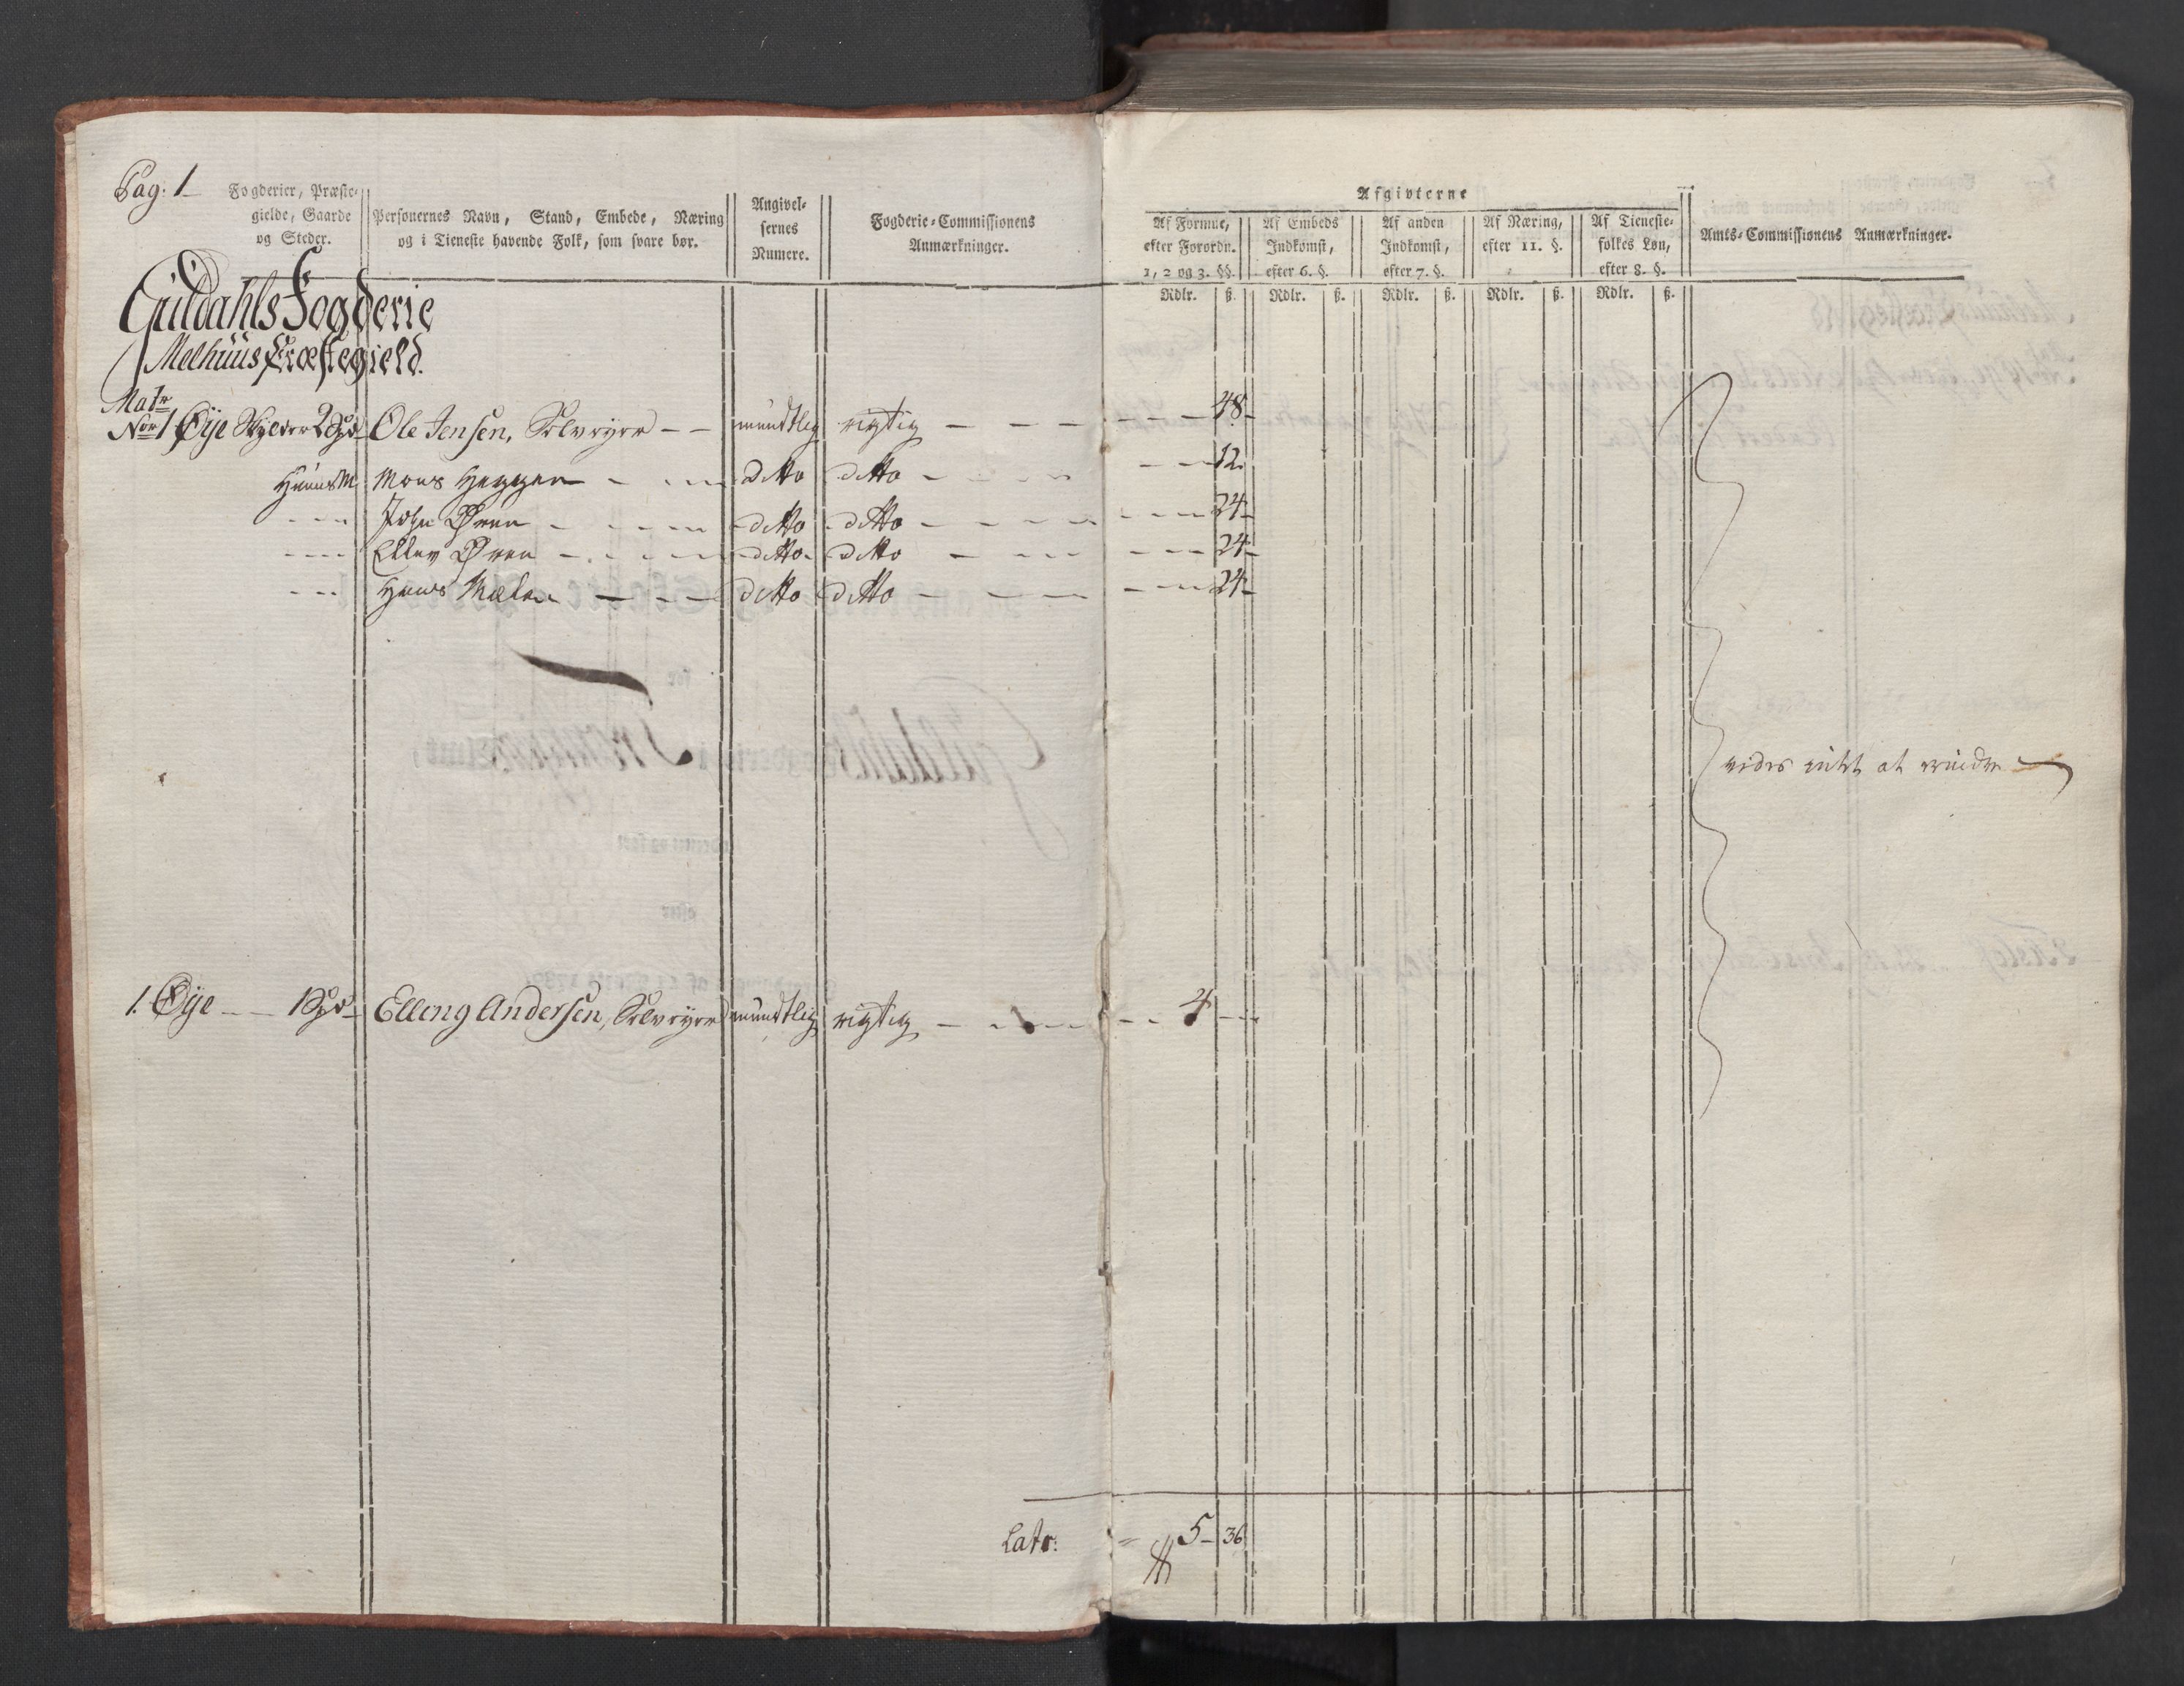 Pag: 1
Fogderier, Præste-
gielde, Gaarde
og Steder.
Personernes Navn, Stand, Embede, Næring
og i Tieneste havende Folk, som svare bør.
Angivel-
sernes
Numere.
Fogderie-Commissionens
Anmærkninger.
Afgivterne
Af Formue,
efter Forordn.
1, 2 og 3. §§.
Af Embeds
Indkomst,
efter 6. §.
Af anden
Indkomst,
efter 7. §.
Af Næring,
efter 11. §.
Af Tieneste-
folkes Løn,
efter 8. §.
Amts-Commissionens Anmærkninger.
Rdlr. ß. Rdlr. ß. Rdlr. ß. Rdlr. ß. Rdlr. ß.
Guldahls Fogderie
Melhuus Præstegield.
Matr
Nor 1 Øye Skylder 2 Spd Ole Jensen, Selveyer - - mundtlig rigtig - - - 48
Huusm Mons - - ditto ditto - - - 12
- - - John Øren - - - ditto ditto - - - 24
- - - Ellev Øren - - - ditto ditto - - - 24
- - - Hans - - - ditto ditto - - - 24
vides intet at erindre
1. Øye - - 1 Spd Elling Andersen, Selveyer mundtlig rigtig - - - 4 - -
Latr: 5 - 36